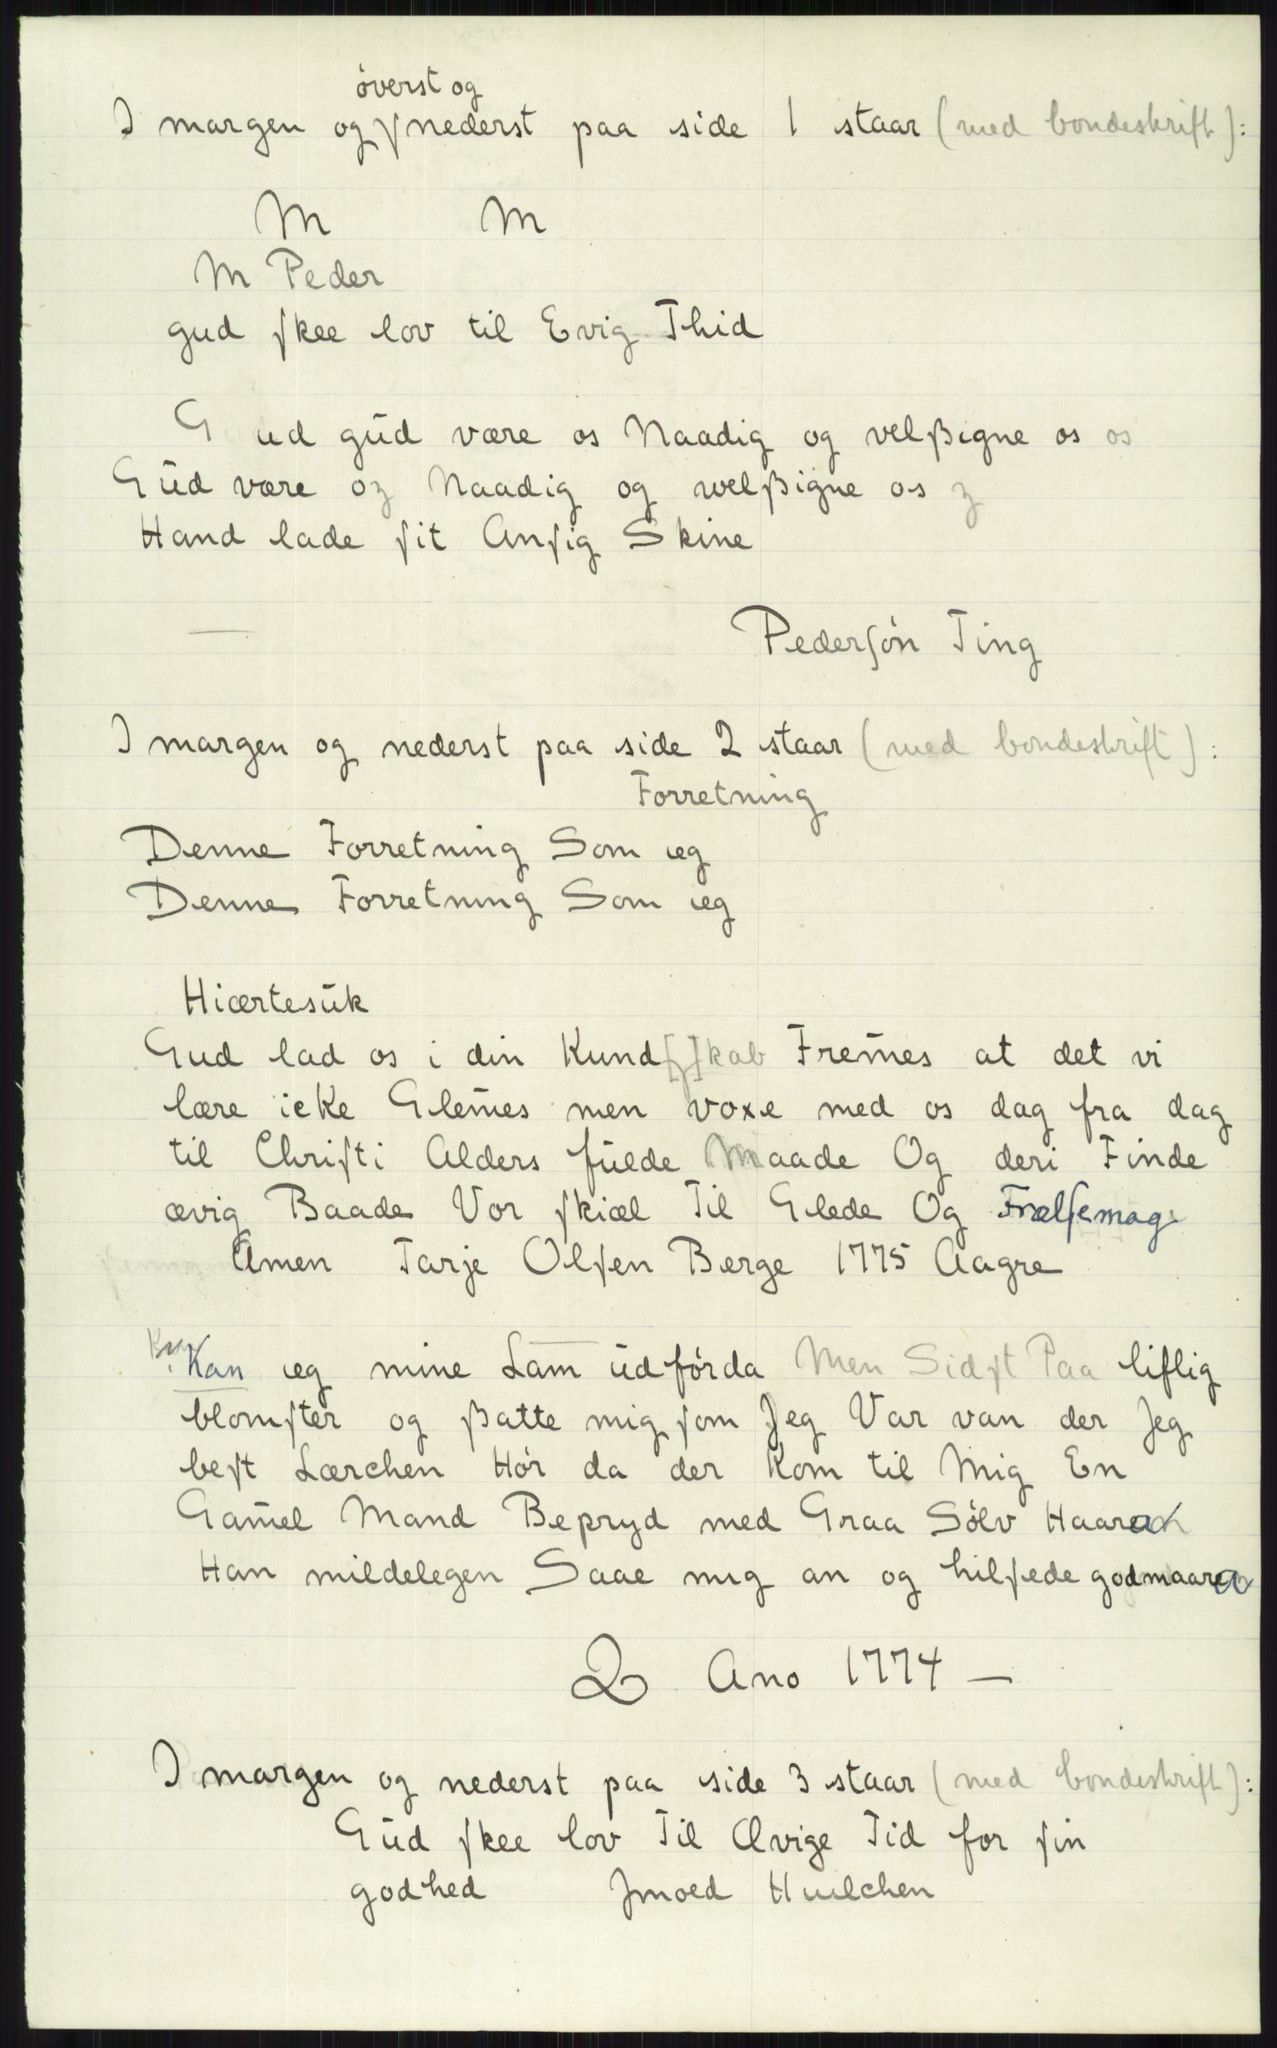 øverst og
I margen og nederst paa side 1 staar (med bondeskrift):
M M
M Peder
gud ſkee lov til Evig Thid
G ud gŭd være os Naadig og velßigne os os
Gŭd være oz Naadig og welßigne os z
Hand lade ſit Anſig Skine
Pederſøn Ting
I margen og nederst paa side 2 staar (med bondeskrift):
Forretning
Denne Forretning Som ieg
Denne Forretning Som ieg
Hiærtesŭk
Gud lad os i din Kund[ſ]kab Frem̄es at det vi
lære icke Glem̄es men voxe med os dag fra dag
til Chriſti Alders fŭlde Maade Og deri Finde
ævig Baade Vor ſkiæl Til Glede Og Frælſemag
Amen Tarje Olſen Berge 1775 Aagre
Kan ieg mine Lam ŭdførda Men Sidſt Paa liflig
blomſter og ßatte mig ſom Jeg Var van der Jeg
beſt Lærchen Hør da der Kom til Mig En
Gam̄el Mand Bepryd med Graa Sølv Haar
Han mildelegen Saae mig an og hilſede godmaare
2 Ano 1774 —
I margen og nederst paa side 3 staar (med bondeskrift):
Gŭd ſkee lov Til Ævige Tid for ſin
godhed Jmoed Huelchen